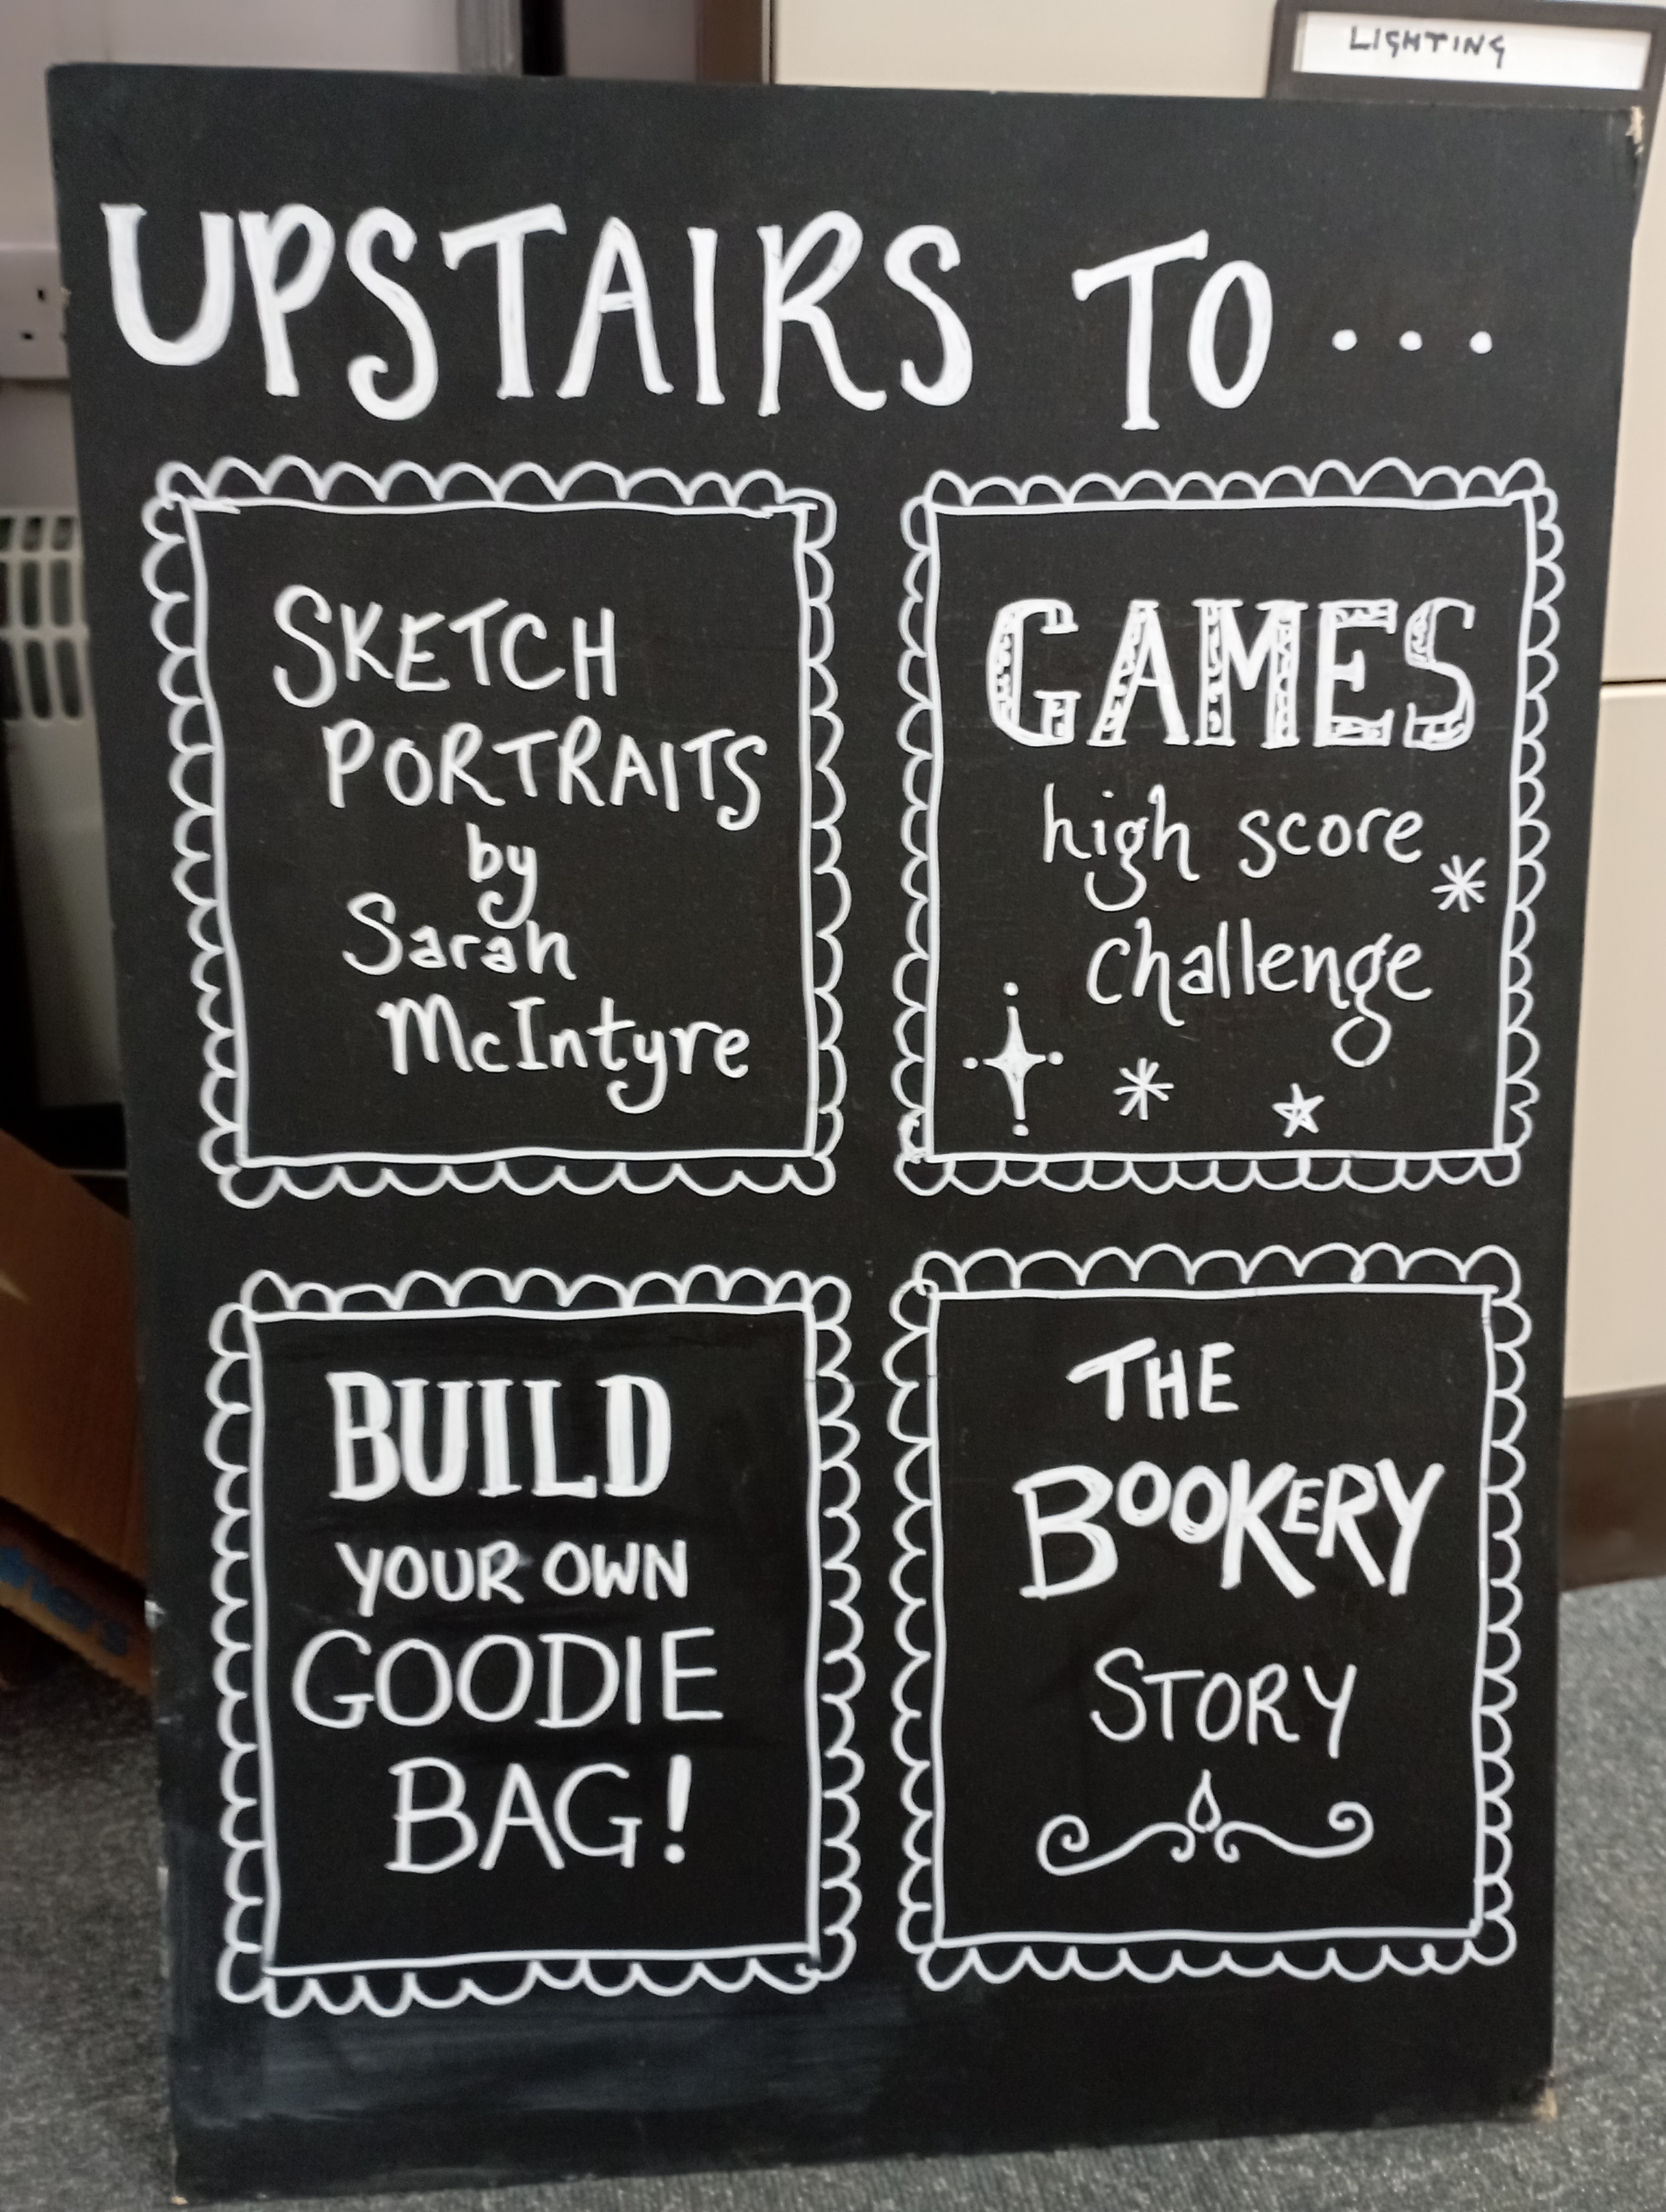 LIGHTING
UPSTAIRS TO...
SKETCH
PORTRAITS
by
Sarah
McIntyre
GAMES
high score
challenge
BUILD
YOUR OWN
GOODIE
BAG!
THE
BOOKERY
STORY